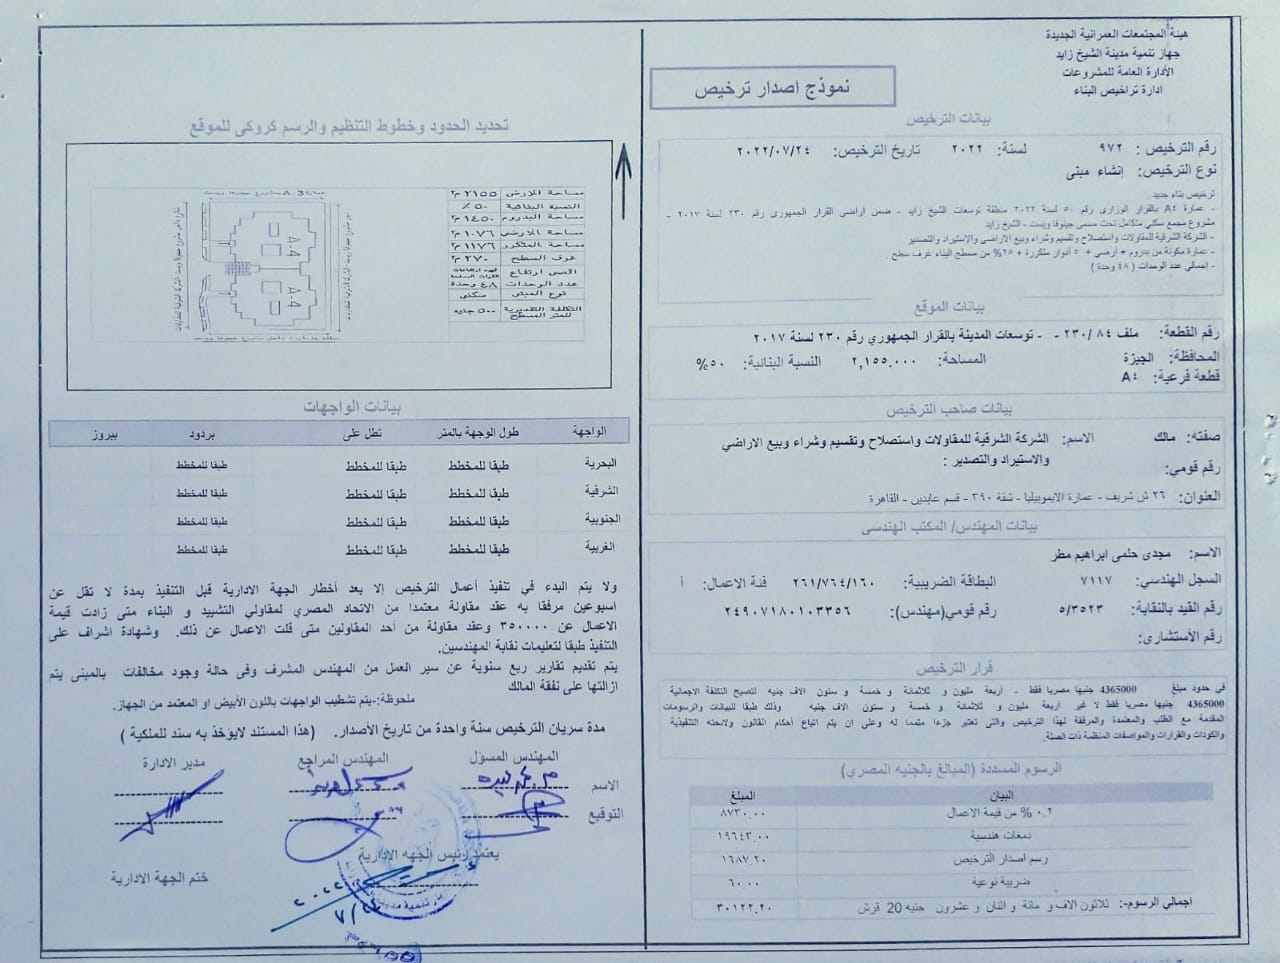 هيئة المجتمعات العمرانية الجديدة
جهاز تنمية مدينة الشيخ زايد
الأدارة العامة للمشروعات
ادارة تراخيص البناء
نموذج اصدار ترخيص
بيانات الترخيص
رقم الترخيص : ٩٧٢ لسنة: ٢٠٢٢ تاريخ الترخيص: ٢٠٢٢/٠٧/٢٤
نوع الترخيص: إنشاء مبنى
ترخيص بناء جديد
- عمارة A٤ بالقرار الوزارى رقم ٥٠ لسنة ٢٠٢٢ منطقة توسعات الشيخ زايد - ضمن أراضى القرار الجمهورى رقم ٢٣٠ لسنة ٢٠١٧ -
مشروع مجمع سكني متكامل تحت مسمى جينوفا ويست - الشيخ زايد
- الشركة الشرقية للمقاولات واستصلاح وتقسيم وشراء وبيع الاراضي والاستيراد والتصدير
- عمارة مكونة من بدروم + أرضي + ٥ أدوار متكررة + ٢٥% من مسطح البناء غرف سطح .
- إجمالي عدد الوحدات ( ٤٨ وحدة )
بيانات الموقع
رقم القطعة: ملف ٨٤ /٢٣٠ - - توسعات المدينة بالقرار الجمهوري رقم ٢٣٠ لسنة ٢٠١٧
المحافظة: الجيزة المساحة: ٢,١٥٥.٠٠٠ النسبة البنائية: ٥٠%
قطعة فرعية: A٤
بيانات صاحب الترخيص
صفته: مالك الاسم: الشركة الشرقية للمقاولات واستصلاح وتقسيم وشراء وبيع الاراضي
والاستيراد والتصدير :
رقم قومي:
العنوان: ٢٦ ش شريف - عمارة الايموبيليا - شقة ٣٩٠ - قسم عابدين - القاهرة
بيانات المهندس/ المكتب الهندسى
الاسم: مجدى حلمى ابراهيم مطر
السجل الهندسي: ٧١١٧ البطاقة الضريبية: ٢٦١/٧٦٤/١٦٠ فئة الاعمال: أ
رقم القيد بالنقابة: ٥/٣٥٢٣ رقم قومي(مهندس): ٢٤٩٠٧١٨٠١٠٣٣٥٦
رقم الأستشارى:
قرار الترخيص
في حدود مبلغ 4365000 جنيها مصريا فقط - أربعة مليون و ثلاثمائة و خمسة و ستون الاف جنيه لتصبح التكلفة الاجمالية
4365000 جنيها مصريا فقط لا غير أربعة مليون و ثلاثمائة و خمسة و ستون الاف جنيه وذلك طبقا للبيانات والرسومات
المقدمة مع الطلب والمعتمدة والمرفقة لهذا الترخيص والتى تعتبر جزءا متمما له وعلى إن يتم اتباع أحكام القانون ولائحته التنفيذية
والكودات والقرارات والمواصفات المنظمة ذات الصلة.
الرسوم المسددة (المبالغ بالجنيه المصري)
البيان المبلغ
٠.٢ % من قيمة الاعمال ٨٧٣٠.٠٠
دمغات هندسية ١٩٦٤٣.٠٠
رسم اصدار الترخيص ١٦٨٧.٢٠
ضريبة نوعية ٦٠.٠٠
اجمالي الرسوم:- ثلاثون الاف و مائة و اثنان و عشرون جنيه 20 قرش ٣٠١٢٢.٢٠
تحديد الحدود وخطوط التنظيم والرسم كروكى للموقع
مساحة الارض ٢١٥٥ م٢
النسبة البنائية ٥٠ %
مساحة البدروم ١٤٥٠ م٢
مساحة الارضى ١٠٧٦ م٢
مساحة المتكرر ١١٧٦ م٢
غرف السطح ٢٧٠ م٢
اقصى ارتفاع
عدد الوحدات ٤٨ وحدة
نوع المبنى سكنى
التكلفة التقديرية للمتر المسطح ٥٠٠ جنيه
A-4
A-4
بيانات الواجهات
الواجهة طول الوجهة بالمتر تطل على بردود ببروز
البحرية طبقا للمخطط طبقا للمخطط طبقا للمخطط
الشرقية طبقا للمخطط طبقا للمخطط طبقا للمخطط
الجنوبية طبقا للمخطط طبقا للمخطط طبقا للمخطط
الغربية طبقا للمخطط طبقا للمخطط طبقا للمخطط
ولا يتم البدء في تنفيذ أعمال الترخيص إلا بعد أخطار الجهة الادارية قبل التنفيذ بمدة لا تقل عن
اسبوعين مرفقا به عقد مقاولة معتمدا من الاتحاد المصري لمقاولي التشييد و البناء متى زادت قيمة
الاعمال عن ٣٥٠٠٠٠ وعقد مقاولة من أحد المقاولين متى قلت الاعمال عن ذلك. وشهادة اشراف على
التنفيذ طبقا لتعليمات نقابة المهندسين.
يتم تقديم تقارير ربع سنوية عن سير العمل من المهندس المشرف وفى حالة وجود مخالفات بالمبنى يتم
ازالتها على نفقة المالك
ملحوظة:-يتم تشطيب الواجهات باللون الأبيض او المعتمد من الجهاز.
مدة سريان الترخيص سنة واحدة من تاريخ الأصدار. (هذا المستند لايؤخذ به سند للملكية )
المهندس المسؤل المهندس المراجع مدير الادارة
الاسم
التوقيع
يعتمد رئيس الجهه الادارية
ختم الجهة الادارية